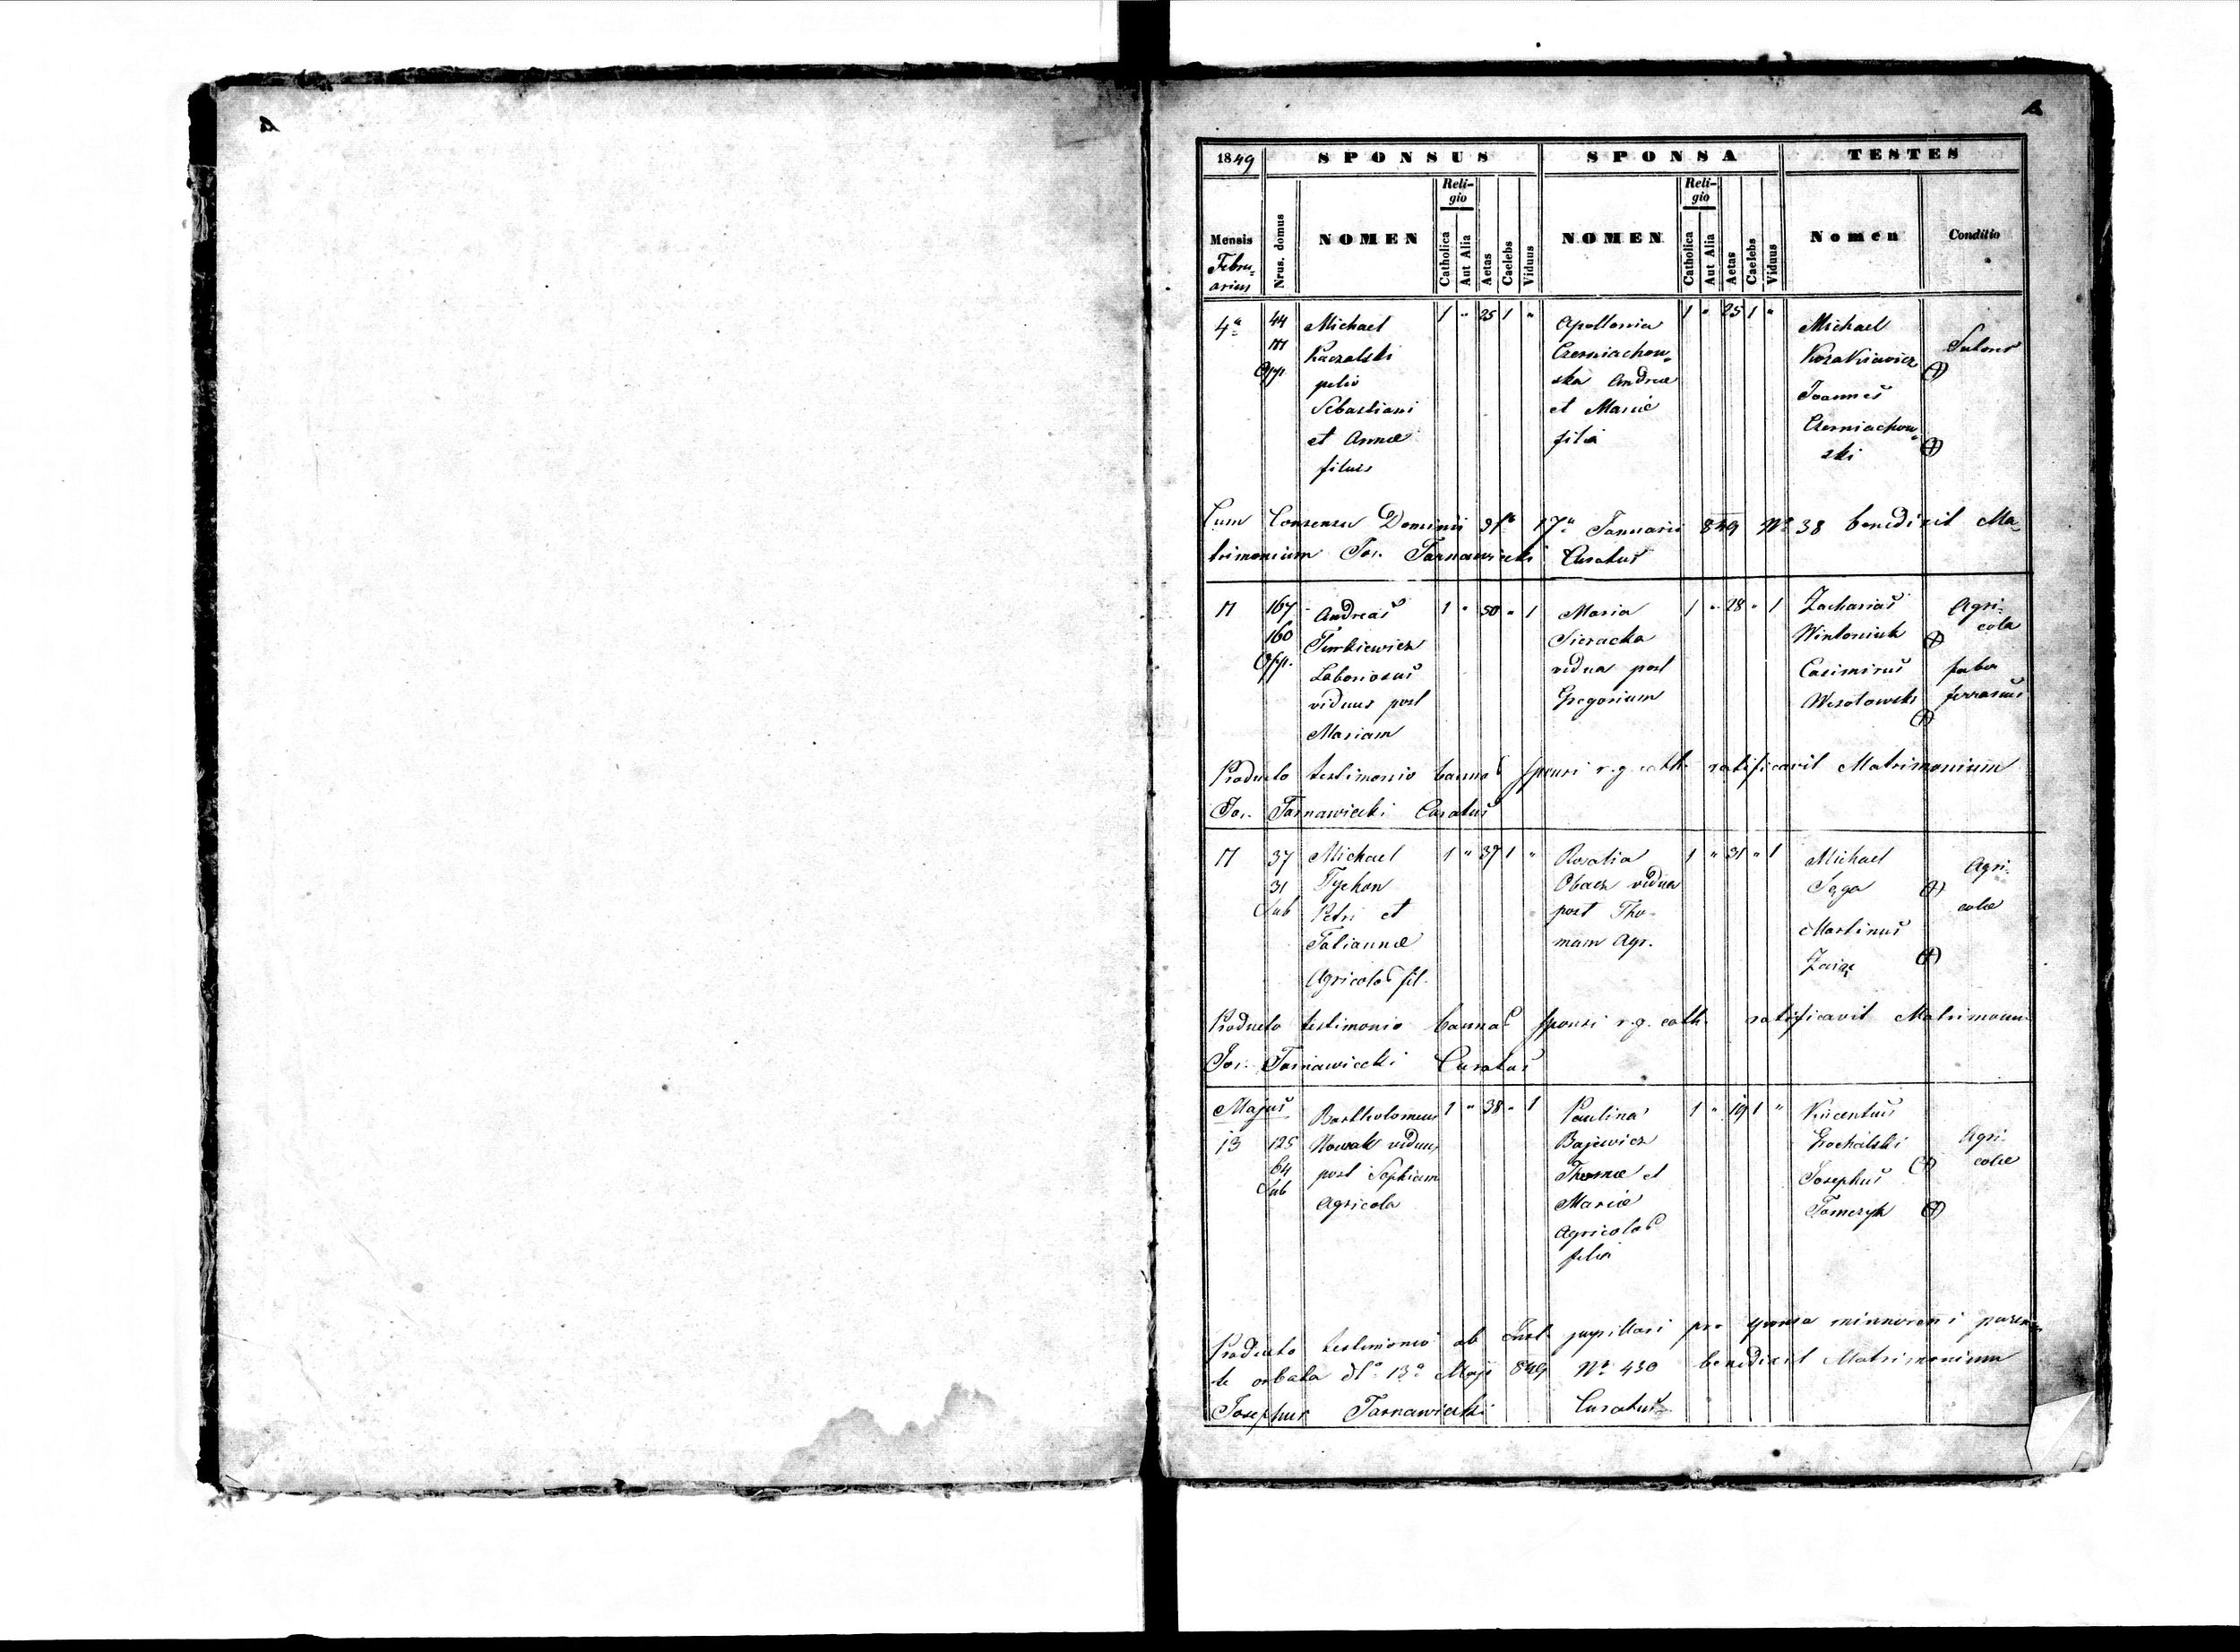 1849 SPONSUS SPONSA TESTES
Mensis Febru-
arius
Nrus. domus
NOMEN
Reli-
gio
Catholica
Aut Alia
Aetas
Caelebs
Viduus
NOMEN
Reli-
gio
Catholica
Aut Alia
Aetas
Caelebs
Viduus
Nomen
Conditio
4a
44
Opp.
Michael
Kaczalski
Sebastiani
et Annæ
filius
1 " 25 1 "
Apollonia
Czerniachow-
ska Andreæ
et Mariæ
filia
1 " 25 1 "
Michael
Kozakiewicz
Joannes
Czerniachow-
ski
Sutores
Cum Consensu Dominii 17a Januarii 849 No 38 benedixit Ma-
trimonium Jos. Tarnawiecki Curatus
11
167
160
Opp.
Andreas
Turkiewicz
Laboriosus
viduus post
Mariam
1 " 50 " 1
Maria
Sieracka
vidua post
Gregorium
1 " 28 " 1
Zacharias
Wintoniuk
Casimirus
Wesołowski
Agri-
cola
faber
ferrarius
Producto testimonio bannor sponsi r. g. cath. ratificavit Matrimonium
Jos. Tarnawiecki Curatus
11
37
31
Sub
Michael
Tychon
Petri et
Tatiannæ
Agricolar fil.
1 " 37 1 "
Rosalia
Obacz vidua
post Tho-
mam Agr.
1 " 31 " 1
Michael
Martinus
Zając
Agri-
colæ
Producto testimonio bannor sponsi r. g. cath. ratificavit Matrimonium
Jos. Tarnawiecki Curatus
Majus
13
125
64
Sub
Bartholomeus
Nowak viduus
post Sophiam
Agricola
1 " 38 " 1
Paulina
Bajewicz
Thomæ et
Mariæ
Agricolar
filia
1 " 19 1 "
Vincentius
Grochalski
Josephus
Tomczyk
Agri-
colæ
Producto testimonio ab Inst. pupillari pro sponsa minorenni paren-
te orbata dto 13a Maji 849 No 430 benedixit Matrimonium
Josephus Tarnawiecki Curatus